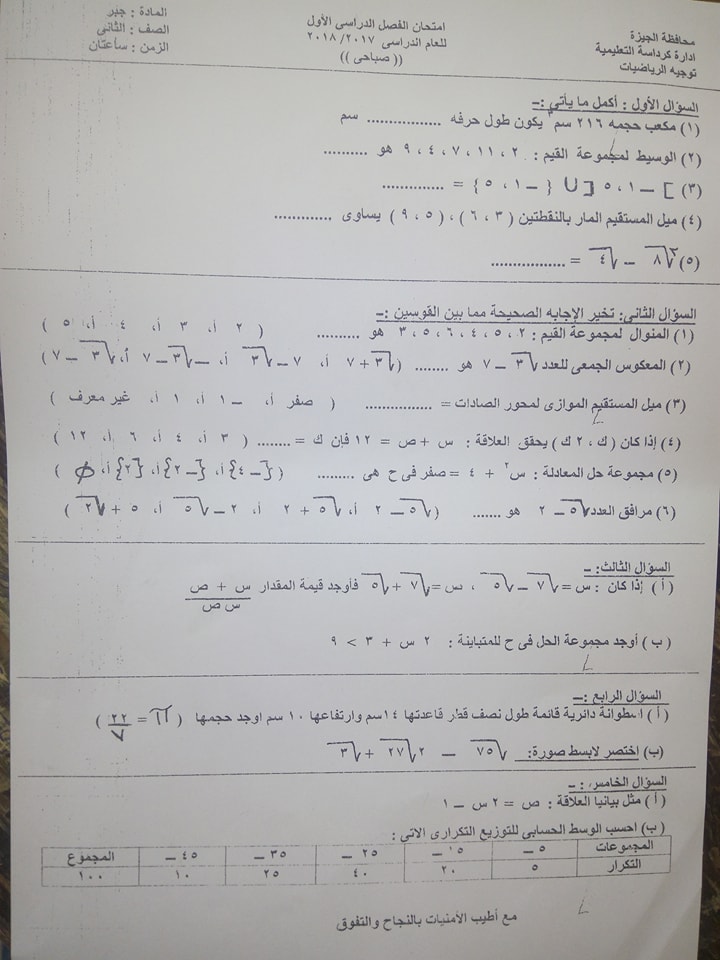 محافظة الجيزة
ادارة كرداسة التعليمية
توجيه الرياضيات
امتحان الفصل الدراسى الأول
للعام الدراسى ٢٠١٧/ ٢٠١٨
(( صباحى ))
المادة : جبر
الصف : الثانى
الزمن : ساعتان
السؤال الأول : أكمل ما يأتي :-
(١) مكعب حجمه ٢١٦ سم٣ يكون طول حرفه ................. سم
(٢) الوسيط لمجموعة القيم : ٢ ، ١١ ، ٧ ، ٤ ، ٩ هو ..........
(٣) ] – ١ ، ٥ [ ∪ { – ١ ، ٥ } = ..............
(٤) ميل المستقيم المار بالنقطتين ( ٣ ، ٦ ) ، ( ٥ ، ٩ ) يساوى .............
(٥) ∛٨ – √٤ = .................
السؤال الثانى: تخير الإجابه الصحيحة مما بين القوسين :-
(١) المنوال لمجموعة القيم : ٢ ، ٥ ، ٤ ، ٦ ، ٥ ، ٣ هو .......... ( ٢ أ، ٣ أ، ٤ أ، ٥ )
(٢) المعكوس الجمعى للعدد √٣ – ٧ هو ........ ( √٣ + ٧ أ، ٧ – √٣ أ، – √٣ – ٧ أ، √٣ – ٧ )
(٣) ميل المستقيم الموازى لمحور الصادات = ................ ( صفر أ، – ١ أ، ١ أ، غير معرف )
(٤) إذا كان ( ك ، ٢ ك ) يحقق العلاقة : س + ص = ١٢ فإن ك = ........ ( ٣ أ، ٤ أ، ٦ أ، ١٢ )
(٥) مجموعة حل المعادلة : س٢ + ٤ = صفر فى ح هى ......... ( {– ٤} أ، {– ٢} أ، {٢} أ، ∅ )
(٦) مرافق العدد √٥ – ٢ هو ....... ( √٥ – ٢ أ، √٥ + ٢ أ، ٢ – √٥ أ، ٥ + √٢ )
السؤال الثالث: –
( أ ) إذا كان : س = √٧ – √٥ ، ص = √٧ + √٥ فأوجد قيمة المقدار س + ص / س ص
( ب ) أوجد مجموعة الحل فى ح للمتباينة : ٢ س + ٣ > ٩
السؤال الرابع :–
( أ ) اسطوانة دائرية قائمة طول نصف قطر قاعدتها ١٤سم وارتفاعها ١٠ سم اوجد حجمها ( π = ٢٢/٧ )
(ب) اختصر لابسط صورة: √٧٥ – ٢ √٢٧ + √٣
السؤال الخامس : –
( أ ) مثل بيانيا العلاقة : ص = ٢ س – ١
( ب ) احسب الوسط الحسابى للتوزيع التكرارى الاتى :
المجموعات ٥ – ١٥ – ٢٥ – ٣٥ – ٤٥ – المجموع
التكرار ٥ ٢٠ ٤٠ ٢٥ ١٠ ١٠٠
مع أطيب الأمنيات بالنجاح والتفوق